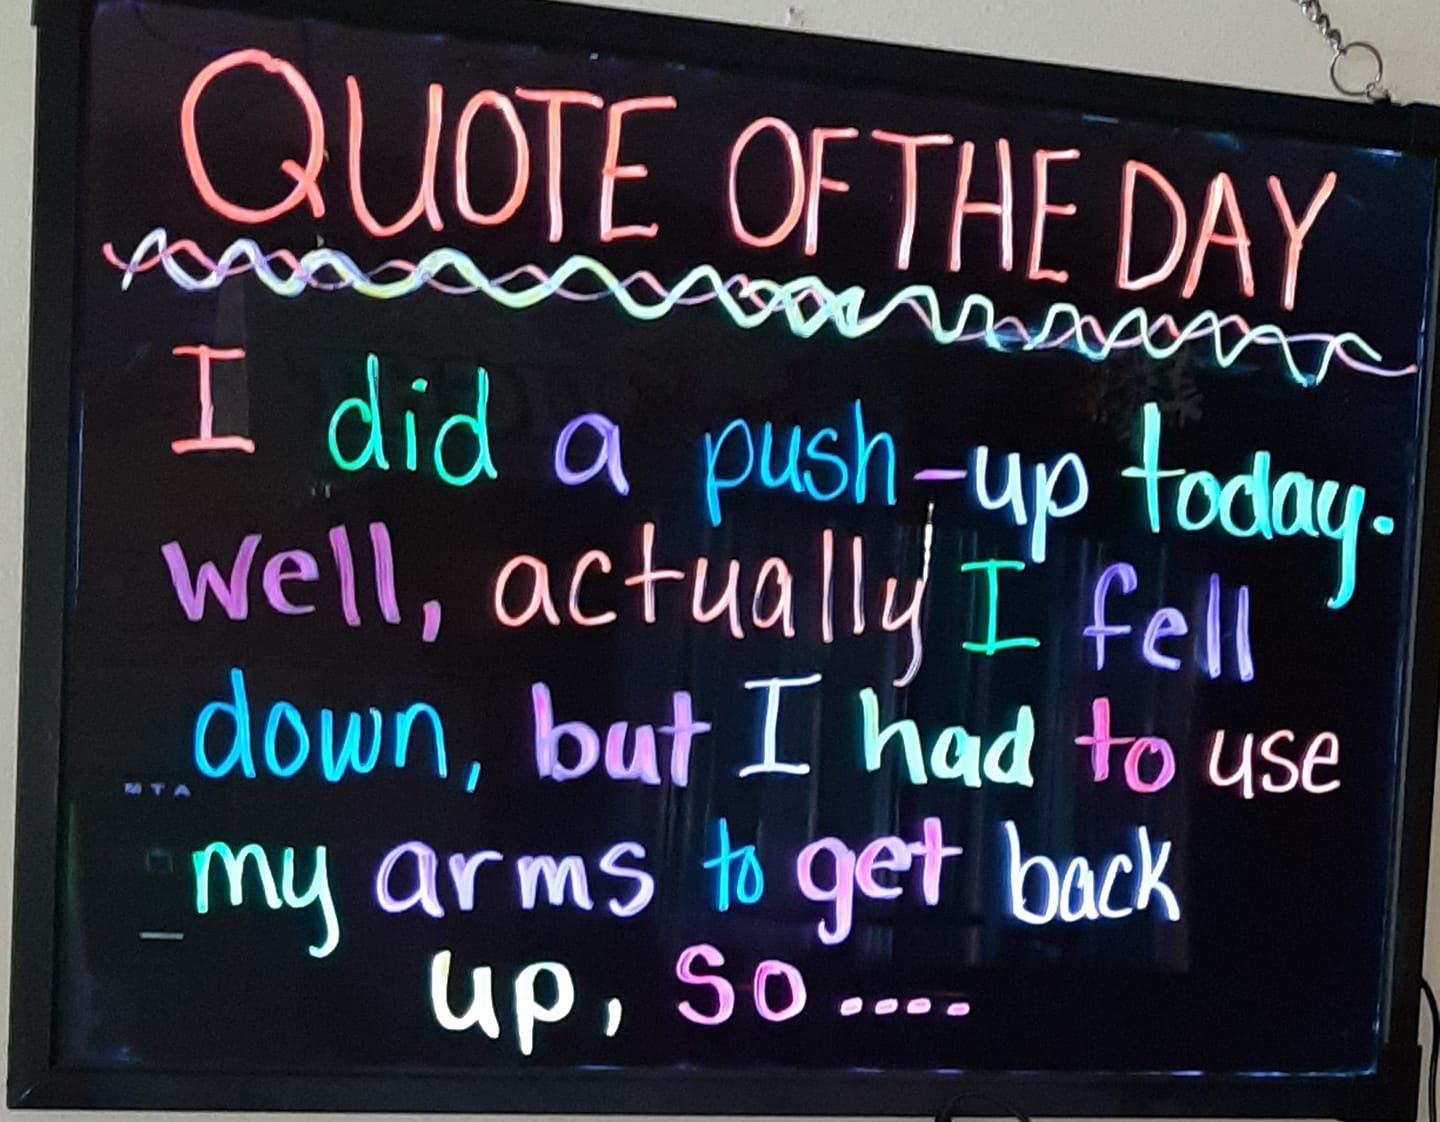 QUOTE OF THE DAY
I did a push-up today.
Well, actually I fell
down, but I had to use
my arms to get back
up, so ....